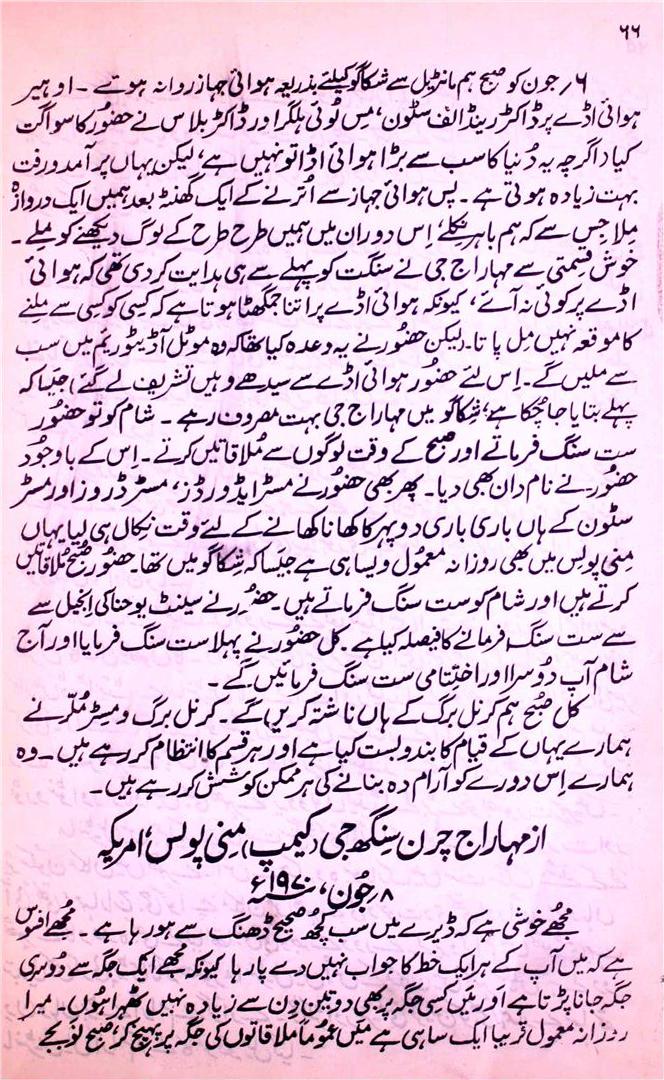 ۶۶
۶؍ جون کو صبح ہم مانٹریل سے شکاگو کیلئے بذریعہ ہوائی جہاز روانہ ہوتے ۔ اوہیر
ہوائی اڈے پر ڈاکٹر رینڈالف سٹون، مس ٹوئی ہلگر اور ڈاکٹر بلاس نے حضور کا سواگت
کیا، اگرچہ یہ دُنیا کا سب سے بڑا ہوائی اڈا تو نہیں ہے، لیکن یہاں پر آمدورفت
بہت زیادہ ہوتی ہے ۔ پس ہوائی جہاز سے اُترنے کے ایک گھنٹہ بعد ہمیں ایک دروازہ
مِلا جس سے کہ ہم باہر نکلے، اِس دوران میں ہمیں طرح طرح کے لوگ دیکھنے کو ملے ۔
خوش قسمتی سے مہاراج جی نے سنگت کو پہلے سے ہی ہدایت کر دی تھی کہ ہوائی
اڈے پر کوئی نہ آئے، کیونکہ ہوائی اڈے پر اتنا جمگھٹا ہوتا ہے کہ کسی کو کسی سے ملنے
کا موقعہ نہیں مِل پاتا ۔ لیکن حضور نے یہ وعدہ کیا تھا کہ وہ موٹل آڈیٹوریم میں سب
سے ملیں گے ۔ اِس لئے حضور ہوائی اڈے سے سیدھے وہیں تشریف لے گئے، جیسا کہ
پہلے بتایا جا چُکا ہے، شکاگو میں مہاراج جی بہت مصروف رہے ۔ شام کو تو حضُور
ست سنگ فرماتے اور صبح کے وقت لوگوں سے مُلاقاتیں کرتے ۔ اِس کے باوجُود
حضُور نے نام دان بھی دیا ۔ پھر بھی حضُور نے مسٹر ایڈورڈز، مسٹر ڈروز اور مسٹر
سٹون کے ہاں باری باری دوپہر کا کھانا کھانے کے لئے وقت نِکال ہی لیا یہاں
مِنی پولِس میں بھی روزانہ معمُول ویسا ہی ہے جیسا کہ شکاگو میں تھا ۔ حضُور صُبح مُلاقاتیں
کرتے ہیں اور شام کو ست سنگ فرماتے ہیں ۔ حضُور نے سینٹ یوحنا کی اِنجیل سے
سے ست سنگ فرمانے کا فیصلہ کیا ہے ۔ کل حضُور نے پہلا ست سنگ فرمایا اور آج
شام آپ دُوسرا اور اختتامی ست سنگ فرمائیں گے ۔
کل صُبح ہم کرنل برگ کے ہاں ناشتہ کریں گے ۔ کرنل برگ و مسٹر مُلّر نے
ہمارے یہاں کے قیام کا بندوبست کیا ہے اور ہر قسم کا انتظام کر رہے ہیں ۔ وہ
ہمارے اِس دورے کو آرام دہ بنانے کی ہر ممکن کوشش کر رہے ہیں ۔
از مہاراج چرن سنگھ جی (کیمپ) مِنی پولس، امریکہ
۸؍ جُون، ۱۹۷۰ء
مُجھے خوشی ہے کہ ڈیرے میں سب کچھ صحیح ڈھنگ سے ہو رہا ہے ۔ مُجھے افسوس
ہے کہ میں آپ کے ہر ایک خط کا جواب نہیں دے پا رہا کیونکہ مُجھے ایک جگہ سے دُوسری
جگہ جانا پڑتا ہے اور میں کسی جگہ پر بھی دو تین دِن سے زیادہ نہیں ٹھہرا ہُوں ۔ میرا
روزانہ معمول تقریباً ایک سا ہی ہے میں عموماً ملاقاتوں کی جگہ پر پہنچ کر، صبح نو بجے